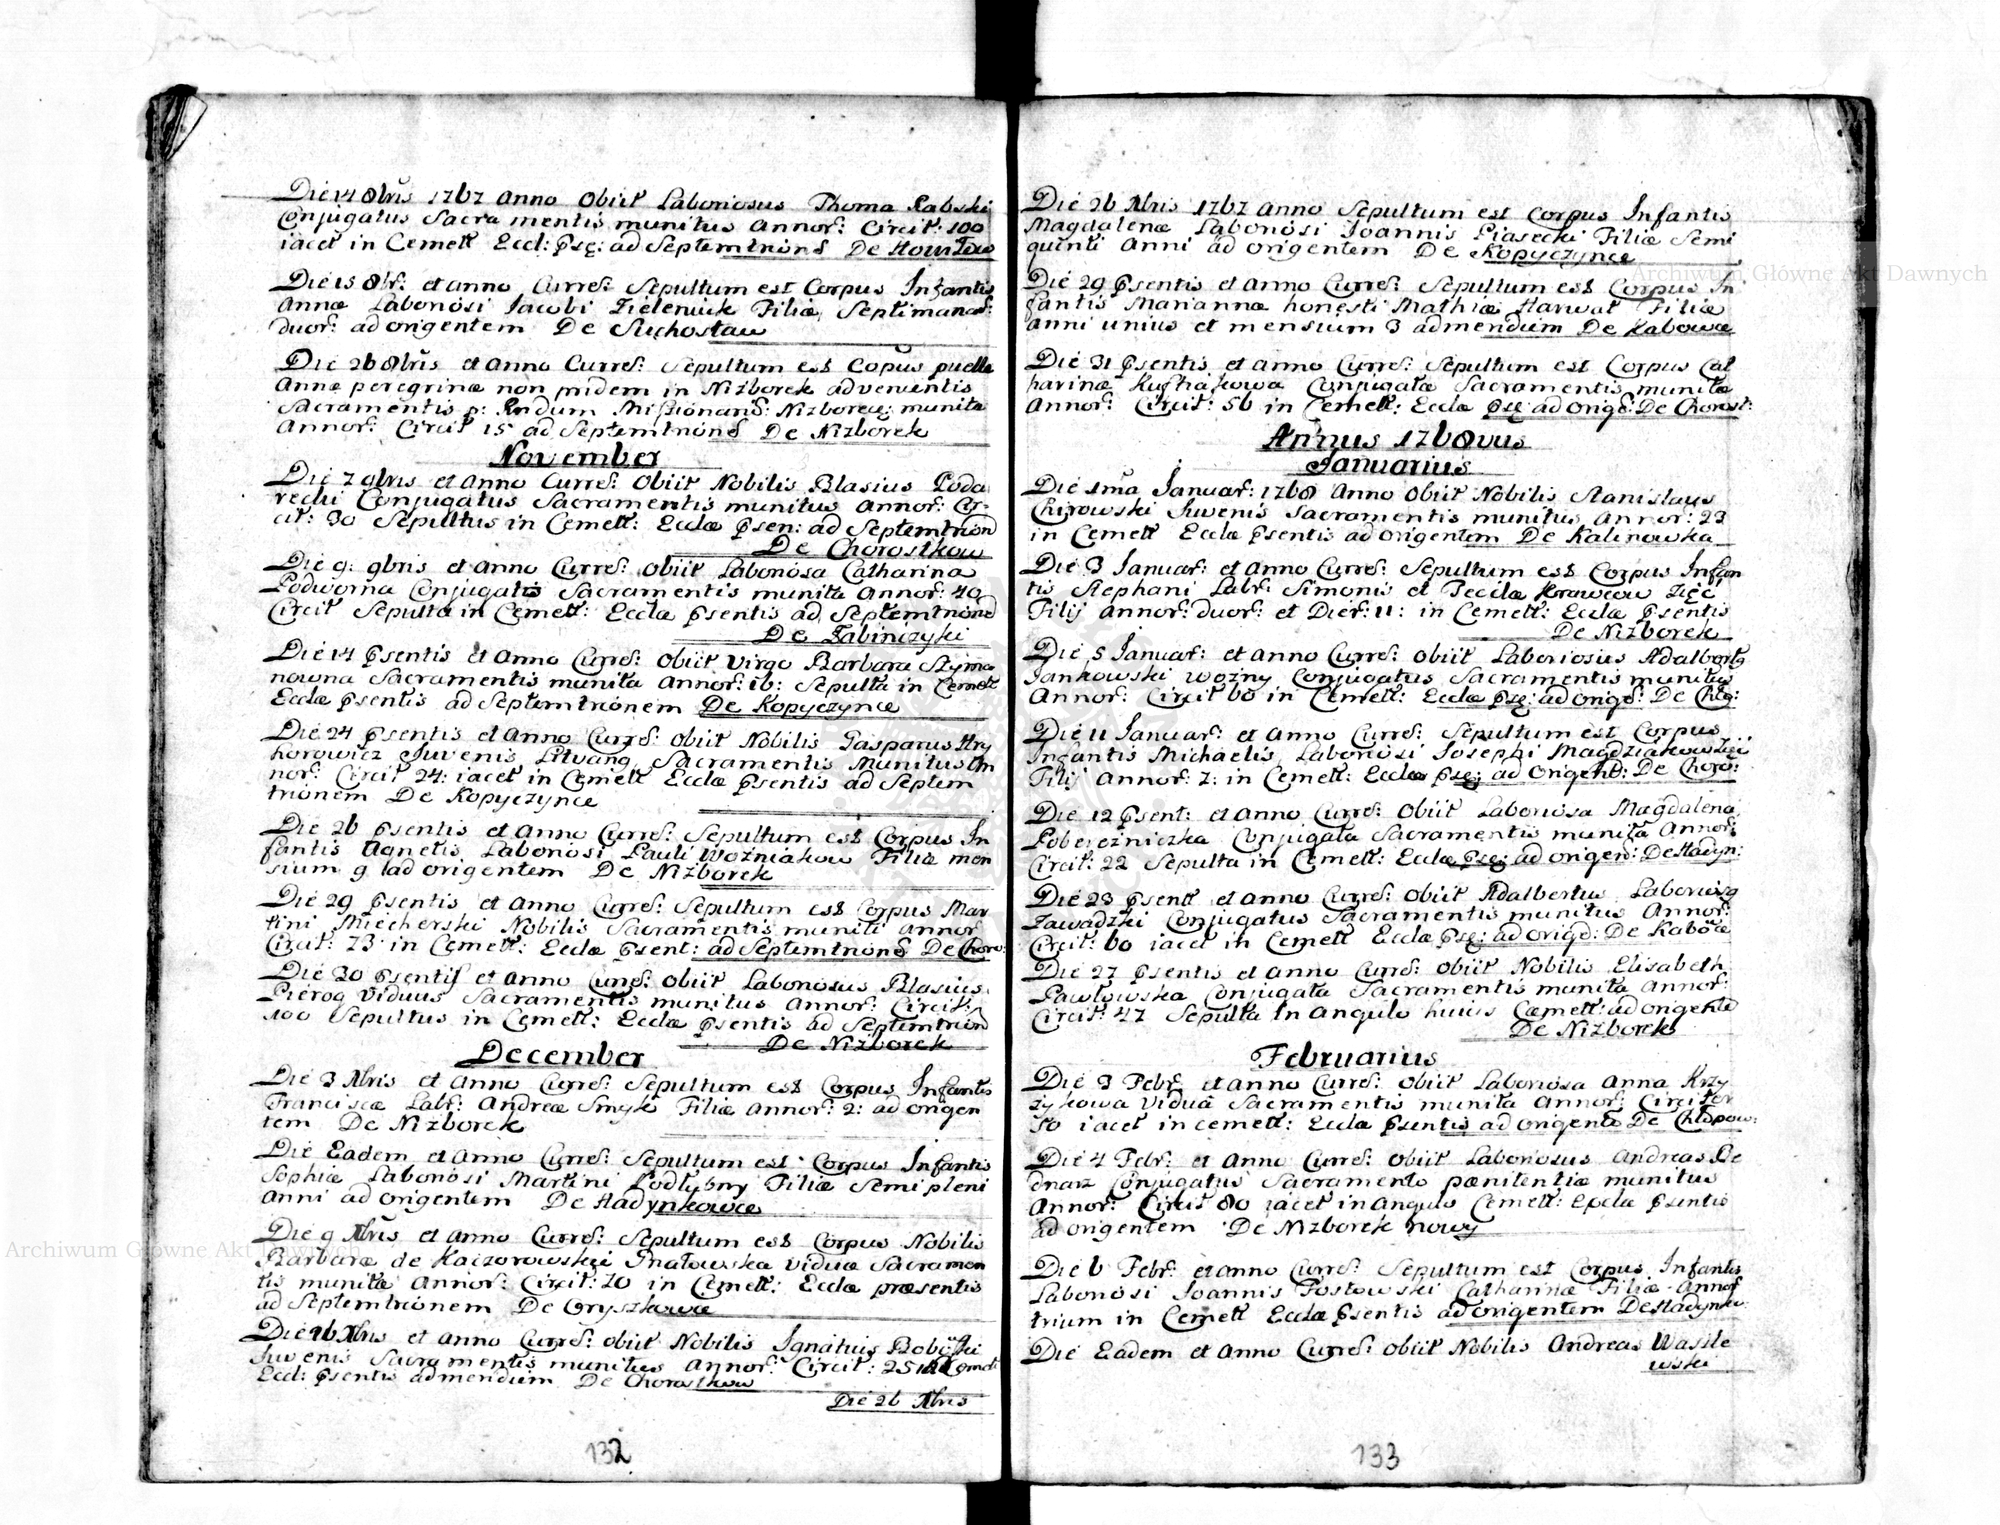 Die 14 8bris 1767 Anno Obiit Laboriosus Thoma Rabski
Conjugatus Sacra mentis munitus Annor: Circit: 100
iacet in Cemett Eccl: Psę: ad Septemtrionē De
Die 15 8br: et anno Curreñ: Sepultum est Corpus Infantis
Annæ Laboriosi Jacobi Zieleniuk Filiæ Septimanar:
duor: ad origentem De Suchostaw
Die 26 8bris et Anno Curreñ: Sepultum est Copus puellæ
Annæ peregrinæ non pridem in Niżborek advenientis
Sacramentis p: Rndum Missionariū: munita
Annor: Circit 15 ad Septemtrionē De Niżborek
November
Die 7 9bris et Anno Curreñ: Obiit Nobilis Blasius Poda
recki Conjugatus Sacramentis munitus Annor: Cir-
cit: 30 Sepultus in Cemett: Eccłæ Psen: ad Septemtrionē
De Chorostkow
Die 9: 9bris et Anno Curreñ: obiit Laboriosa Catharina
Podworna Conjugatis Sacramentis munita Annor: 40
Circit Sepulta in Cemett: Eccla Psentis ad Septemtrionē
De Łabinczyki
Die 14 Psentis et Anno Curreñ: Obiit Virgo Barbara Szyma
nowna Sacramentis munita Annor: 16: Sepulta in Cemett
Ecclæ Psentis ad Septemtrionem De Kopyczynce
Die 24 Psentis et Anno Curreñ: obiit Nobilis Gasparus Hry
horowicz Juvenis Litvanq Sacramentis Munitus An
nor: Circit 24: iacet in Cemett Ecclæ Psentis ad Septem
trionem De Kopyczynce
Die 26 Psentis et Anno Curreñ: Sepultum est Corpus In
fantis Agnetis Laboriosi Pauli Woźniakow Filiæ men
sium 9 ad origentem De Niżborek
Die 29 Psentis et Anno Curreñ: Sepultum est Corpus Mar
tini Miecherski Nobilis Sacramentis muniti Annor
Circit: 73 in Cemett: Ecclæ Psent: ad Septemtrionē De Choro:
Die 30 Psentis et Anno Curreñ: Obiit Laboriosus Blasius
Pierog Viduus Sacramentis munitus Annor: Circit:
100 Sepultus in Cemett: Ecclæ Psentis ad Septemtrionē
De Niżborek
December
Die 3 Xbris et Anno Curreñ: Sepultum est Corpus Infantis
Franciscæ Labr: Andreæ Smyk Filiæ Annor: 2: ad origen
tem De Niżborek
Die Eadem et Anno Curreñ: Sepultum est Corpus Infantis
Sophiæ Laboriosi Martini Podłybny Filiæ Semi pleni
Anni ad origentem De Hadynkowce
Die 9 Xbris et Anno Curreñ: Sepultum est Corpus Nobilis
Barbaræ de Kaczorowskęi Ignatowska viduæ Sacramen
tis munitæ Annor: Circit: 70 in Cemett: Ecclæ præsentis
ad Septemtrionem De Oryszkowce
Die 16 Xbris et Anno Curreñ: obiit Nobilis Ignatius
Juvenis Sacramentis munitus Annor: Circit: 25 in Cemett
Eccl: Psentis admeridium De Chorostkow
Die 26 Xbris
132
Die 26 Xbris 1767 Anno Sepultum est Corpus Infantis
Magdalenæ Laboriosi Joannis Piasecki Filiæ Semi
quinti Anni ad origentem De Kopyczynce
Die 29 Psentis et Anno Curreñ: Sepultum est Corpus In
fantis Mariannæ honesti Mathiæ Harwat Filiæ
anni unius et mensium 3 admeridium De Kabowce
Die 31 Psentis et Anno Curreñ: Sepultum est Corpus Cat
harinæ Conjugata Sacramentis munita
Annor: Circit: 56 in Cemett: Ecclæ Psę ad Origē: De Chorost:
Annus 1768vus
Januarius
Die 1ma Januar: 1768 Anno Obiit Nobilis Stanislaus
Chirowski Juvenis Sacramentis munitus Annor: 23
in Cemett Ecclæ Psentis ad origentem De Kalinowska
Die 3 Januar: et Anno Curreñ: Sepultum est Corpus Infan
tis Stephani Labr: Simonis et Teclæ Krawcow Zięć
Filij Annor: duor: et Dier: 11: in Cemett: Ecclæ Psentis
De Niżborek
Die 5 Januar: et Anno Curreñ: obiit Laboriosus Adalbertq
Jankowski Wozny Conjugatus Sacramentis munitus
Annor: Circit 60 in Cemett: Ecclæ Psę: ad origē: De Chłę:
Die 11 Januar: et Anno Curreñ: Sepultum est Corpus
Infantis Michaelis Laboriosi Josephi
Filij Annor: 7: in Cemett: Ecclæ Psę: ad Origentē: De Choro:
Die 12 Psent: et Anno Curreñ: Obiit Laboriosa Magdalena
Pobereźniczka Conjugata Sacramentis munita Annor:
Circit: 22 Sepulta in Cemett: Ecclæ Psę: ad origen: De Hadyn:
Die 23 Psentt et Anno Curreñ: Obiit Adalbertus Laboriosq
Zawadzki Conjugatus Sacramentis munitus Annor:
Circit: 60 iacet in Cemett Ecclæ Psę: ad origē: De Kabōce
Die 27 Psentis et Anno Curreñ: Obiit Nobilis Elisabeth
Pawłowska Conjugata Sacramentis munita Annor:
Circit: 47 Sepulta in angulo huius Cæmett: ad origente
De Niżborek
Februarius
Die 3 Febr: et Anno Curreñ: Obiit Laboriosa Anna Krzy
żykowa Vidua Sacramentis munita Annor: Circiter
50 iacet in cemett: Ecclæ Psentis ad origentē De Chłopow:
Die 4 Febr: et Anno Curreñ: Obiit Laboriosus Andreas Be
dnarz Conjugatus Sacramento pænitentiæ munitus
Annor: Circit 80 iacet in angulo Cemett: Eccla Psentis
ad origentem De Niżborek nowy
Die 6 Febr: et anno Curreñ: Sepultum est Corpus Infantis
Laboriosi Joannis Postowski Catharinæ Filiæ Annor
trium in Cemett Ecclæ Psentis ad origentem De Hadynk:
Die Eadem et Anno Curreñ: obiit Nobilis Andreas Wasile
wski
133
Archiwum Główne Akt Dawnych
Archiwum Główne Akt Dawnych